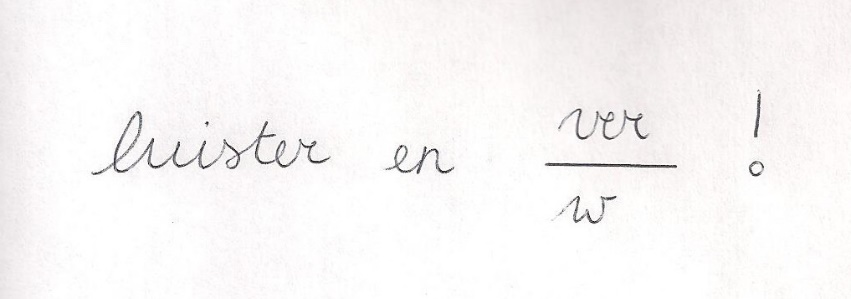 luister en ver !
w